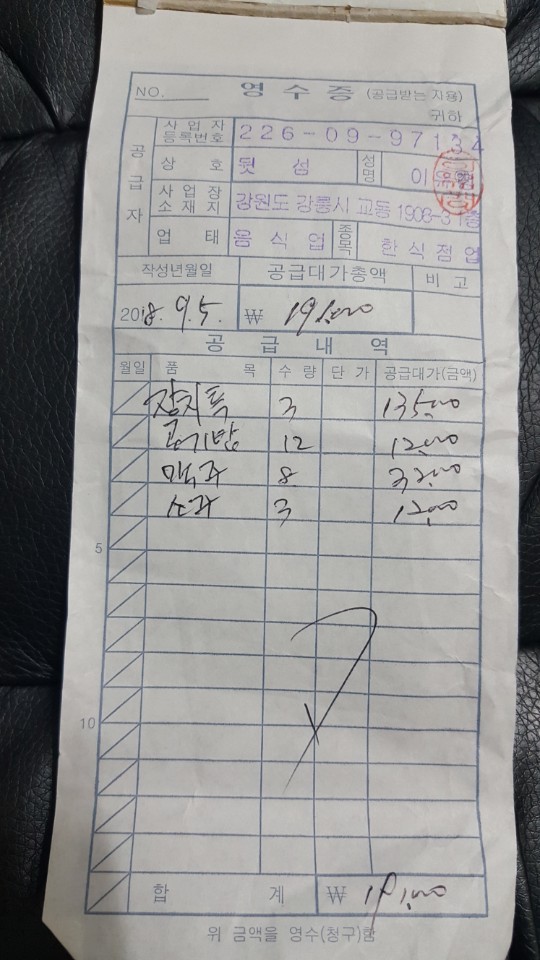 NO.
영 수 증 (공급받는 자용)
귀하
공급자
사업자 등록번호 226-09-97134
상 호 뒷 섬 성명 이
사업장 소재지 강원도 강릉시 교동 1908-3 1층
업 태 음식업 종목 한식점업
작성년월일 공급대가총액 비 고
2018. 9. 5. ₩ 191,000
공 급 내 역
월일 품 목 수 량 단 가 공급대가(금액)
장치찜 3 135,000
공기밥 12 12,000
맥주 8 32,000
소주 3 12,000
5
10
합 계 ₩ 191,000
위 금액을 영수(청구)함